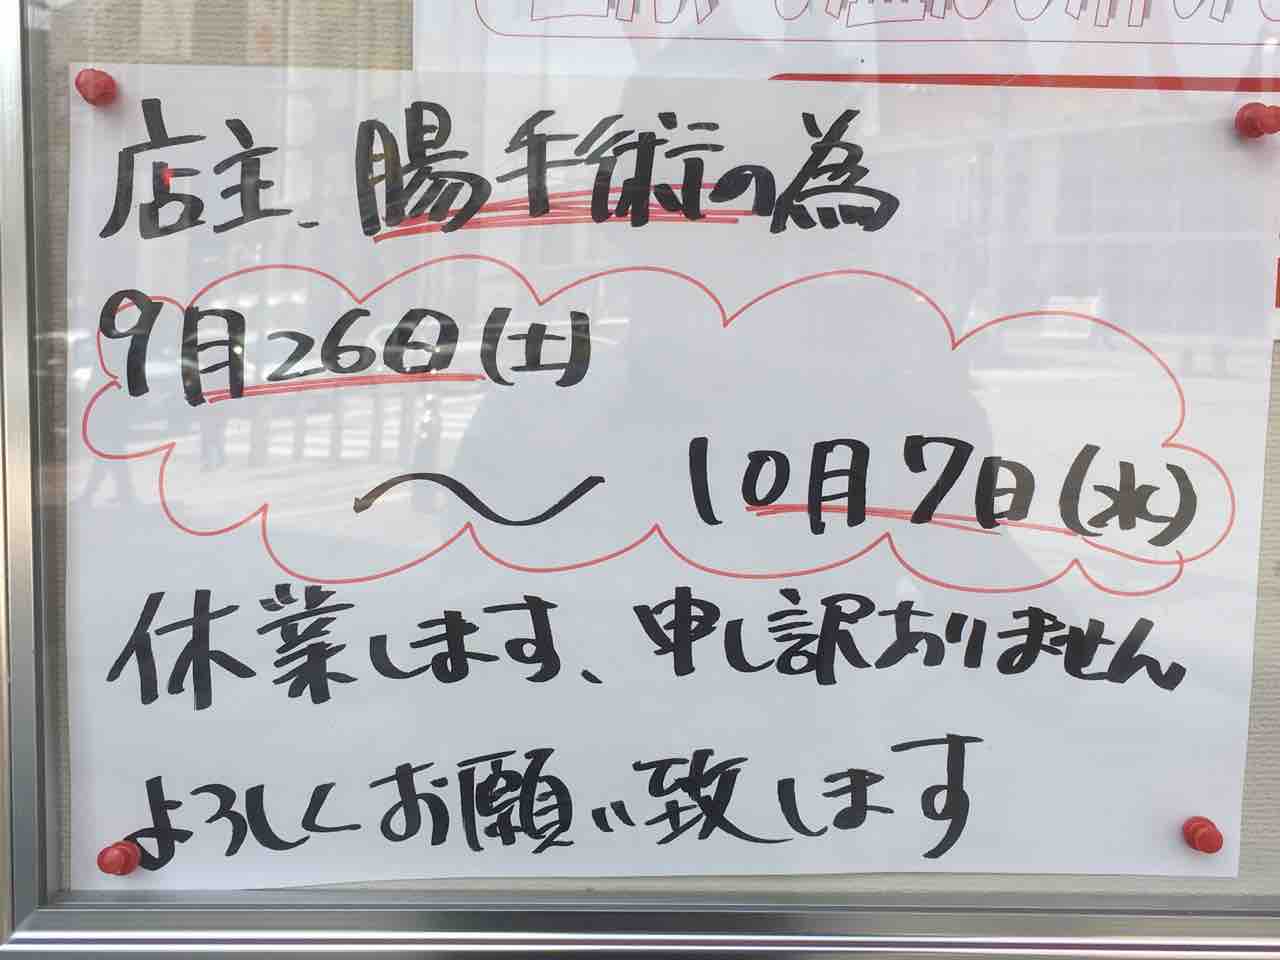 店主、腸手術の為
9月26日(土)
〜 10月7日(水)
休業します、申し訳ありません
よろしくお願い致します